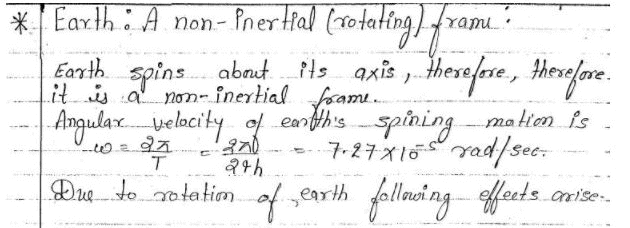 * Earth : A non-Inertial (rotating) frame :
Earth spins about its axis, therefore, therefore
it is a non-inertial frame.
Angular velocity of earth's spining motion is
ω = 2π/T = 2π/24h = 7.27 × 10⁻⁵ rad/sec.
Due to rotation of earth following effects arise-